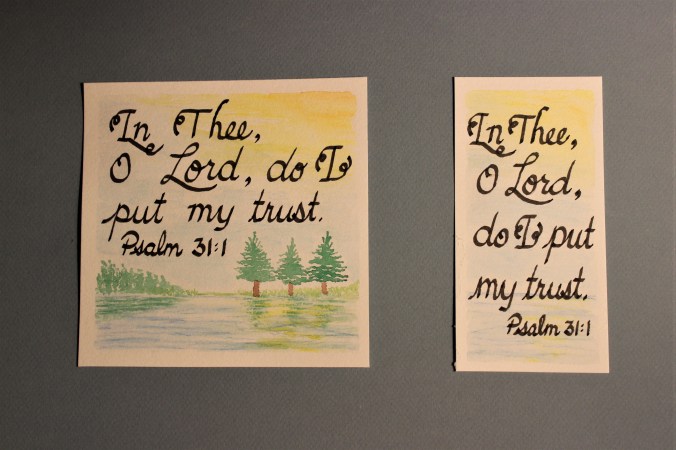 In Thee,
O Lord, do I
put my trust.
Psalm 31:1
In Thee,
O Lord,
do I put
my trust.
Psalm 31:1